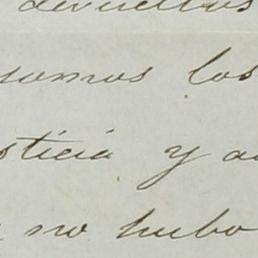 devueltos
somos los
sticia y a
no hubo